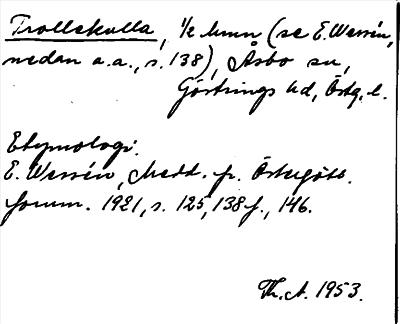 Trollekulla, 1/2 hmn (se E. Wessén,
nedan a.a., s. 138), Åsbo sn,
Göstrings hd, Östg. l.
Etymologi:
E. Wessén, Medd. fr. Östergötl.
fornm. 1921, s. 125, 138 f., 146.
Th. A. 1953.